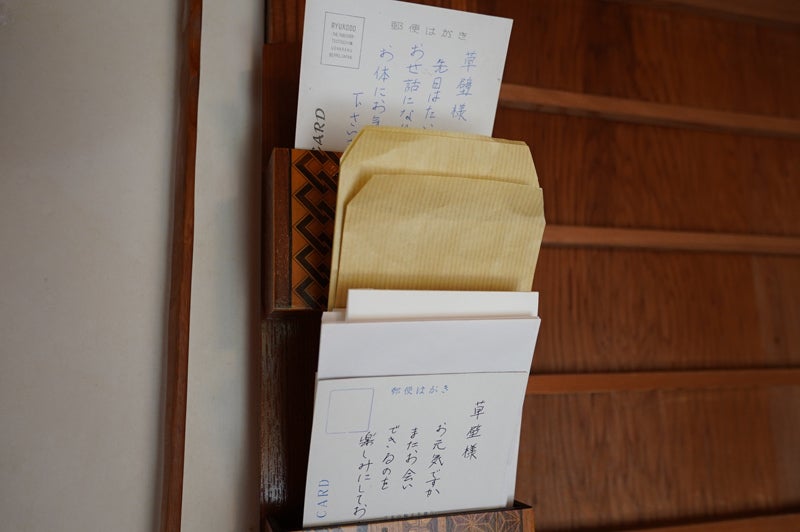 RYUKOBO
郵便はがき
草壁様
先日はたい
お世話にな
お体にお気
下さい
CARD
郵便はがき
草壁様
お元気ですか
またお会い
できるのを
楽しみにして、お
CARD